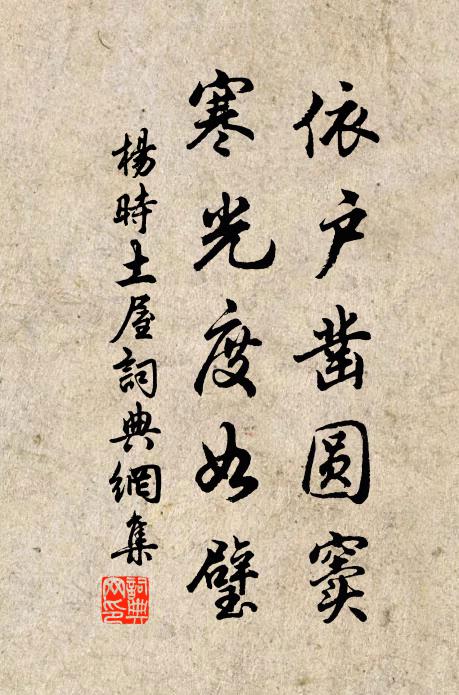 依户凿圆窦
寒光度如璧
楊時土屋詞典網集
詞典网印